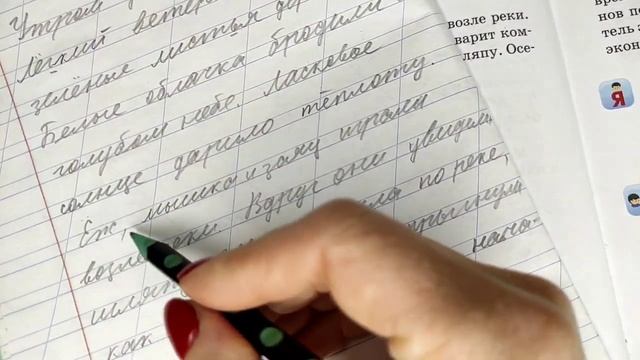 Утром
Лёгкий ветер
зелёные листья де
Белые облачка бродили
голубом небе. Ласковое
солнце дарило теплоту.
Ёж, мышка и заяц играли
возле реки. Вдруг они увидели,
по реке,
шляп
как нача-
возле реки.
варит ком-
ляпу. Осе-
нов по
тель з
экон
Я